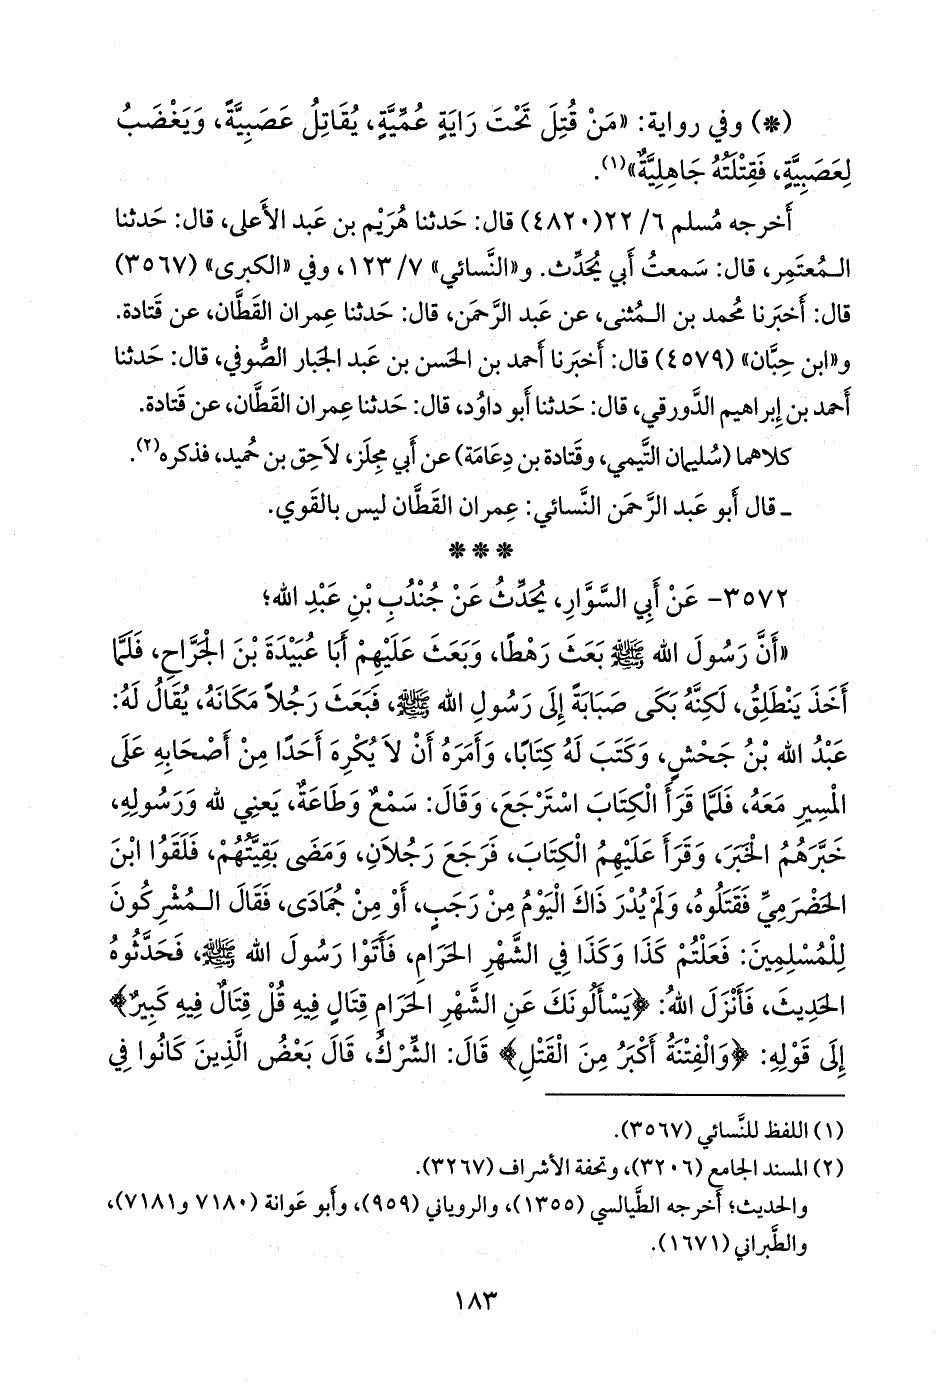 (*) وفي رواية: «مَنْ قُتِلَ تَحْتَ رَايَةٍ عُمِّيَّةٍ، يُقَاتِلُ عَصَبِيَّةً، وَيَغْضَبُ
لِعَصَبِيَّةٍ، فَقِتْلَتُهُ جَاهِلِيَّةٌ»(١).
أَخرجه مُسلم ٦/ ٢٢(٤٨٢٠) قال: حَدثنا هُرَيْم بن عَبد الأَعلى، قال: حَدثنا
الـمُعتَمِر، قال: سَمعتُ أَبي يُحَدِّث. و«النَّسائي» ٧/ ١٢٣، وفي «الكبرى» (٣٥٦٧)
قال: أَخبَرنا مُحمد بن الـمُثنى، عن عَبد الرَّحمَن، قال: حَدثنا عِمران القَطَّان، عن قَتادة.
و«ابن حِبَّان» (٤٥٧٩) قال: أَخبَرنا أَحمد بن الحَسن بن عَبد الجَبار الصُّوفي، قال: حَدثنا
أَحمد بن إِبراهيم الدَّورقي، قال: حَدثنا أَبو داوُد، قال: حَدثنا عِمران القَطَّان، عن قَتادة.
كلاهما (سُليمان التَّيمي، وقَتادة بن دِعَامَة) عن أَبي مِجلَز، لاَحِق بن حُميد، فذكره(٢).
ـ قال أَبو عَبد الرَّحمَن النَّسائي: عِمران القَطَّان ليس بالقَوي.
***
٣٥٧٢- عَنْ أَبِي السَّوَّارِ، يُحَدِّثُ عَنْ جُنْدُبِ بْنِ عَبْدِ الله؛
«أَنَّ رَسُولَ الله ﷺ بَعَثَ رَهْطًا، وَبَعَثَ عَلَيْهِمْ أَبَا عُبَيْدَةَ بْنَ الْجَرَّاحِ، فَلَمَّا
أَخَذَ يَنْطَلِقُ، لَكِنَّهُ بَكَى صَبَابَةً إِلَى رَسُولِ الله ﷺ، فَبَعَثَ رَجُلاً مَكَانَهُ، يُقَالُ لَهُ:
عَبْدُ الله بْنُ جَحْشٍ، وَكَتَبَ لَهُ كِتَابًا، وَأَمَرَهُ أَنْ لاَ يُكْرِهَ أَحَدًا مِنْ أَصْحَابِهِ عَلَى
الْمَسِيرِ مَعَهُ، فَلَمَّا قَرَأَ الْكِتَابَ اسْتَرْجَعَ، وَقَالَ: سَمْعٌ وَطَاعَةٌ، يَعنِي لله وَرَسُولِهِ،
خَبَّرَهُمُ الْخَبَرَ، وَقَرَأَ عَلَيْهِمُ الْكِتَابَ، فَرَجَعَ رَجُلاَنِ، وَمَضَى بَقِيَّتُهُمْ، فَلَقَوُا ابْنَ
الحَضْرَمِيِّ فَقَتَلُوهُ، وَلَمْ يُدْرَ ذَاكَ الْيَوْمُ مِنْ رَجَبٍ، أَوْ مِنْ جُمَادَى، فَقَالَ الـمُشْرِكُونَ
لِلْمُسْلِمِينَ: فَعَلْتُمْ كَذَا وَكَذَا فِي الشَّهْرِ الحَرَامِ، فَأَتَوْا رَسُولَ الله ﷺ، فَحَدَّثُوهُ
الحَدِيثَ، فَأَنْزَلَ اللهُ: ﴿يَسْأَلُونَكَ عَنِ الشَّهْرِ الحَرَامِ قِتَالٍ فِيهِ قُلْ قِتَالٌ فِيهِ كَبِيرٌ﴾
إِلَى قَوْلِهِ: ﴿وَالْفِتْنَةُ أَكْبَرُ مِنَ الْقَتْلِ﴾ قَالَ: الشِّرْكُ، قَالَ بَعْضُ الَّذِينَ كَانُوا فِي
(١) اللفظ للنَّسائي (٣٥٦٧).
(٢) المسند الجامع (٣٢٠٦)، وتحفة الأشراف (٣٢٦٧).
والحديث؛ أَخرجه الطَّيالسي (١٣٥٥)، والروياني (٩٥٩)، وأَبو عَوانة (٧١٨٠ و٧١٨١)،
والطَّبراني (١٦٧١).
١٨٣